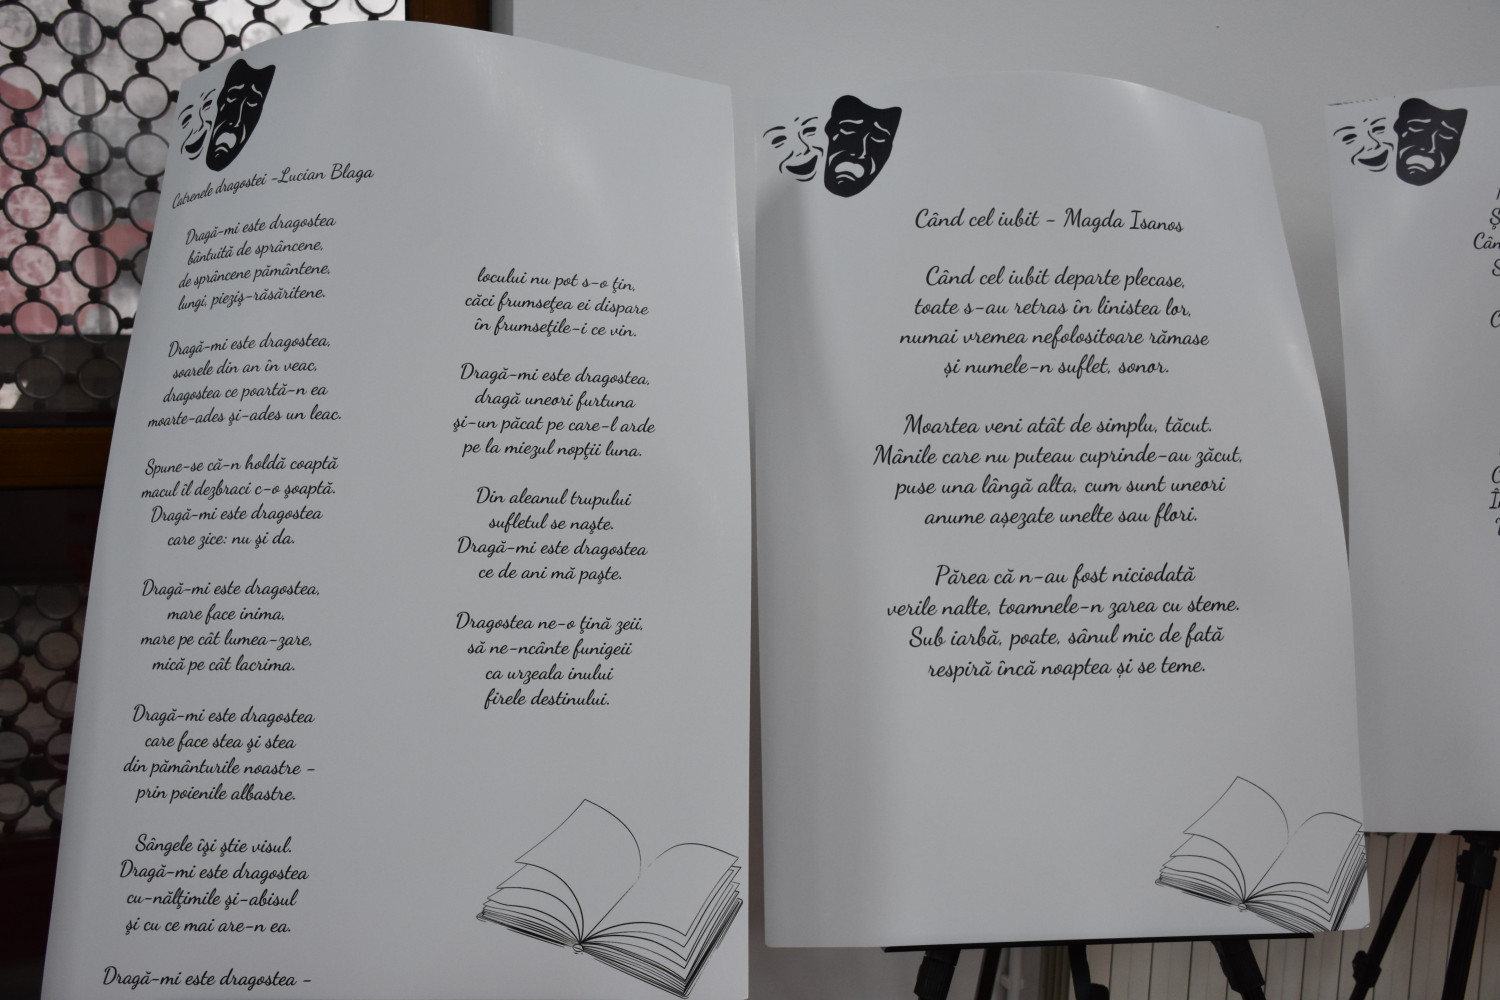 Catrenele dragostei -Lucian Blaga
Dragă-mi este dragostea
bântuită de sprâncene,
de sprâncene pământene,
lungi, pieziş-răsăritene.
Dragă-mi este dragostea,
soarele din an în veac,
dragostea ce poartă-n ea
moarte-ades şi-ades un leac.
Spune-se că-n holdă coaptă
macul îl dezbraci c-o şoaptă.
Dragă-mi este dragostea
care zice: nu şi da.
Dragă-mi este dragostea,
mare face inima,
mare pe cât lumea-zare,
mică pe cât lacrima.
Dragă-mi este dragostea
care face stea şi stea
din pământurile noastre -
prin poienile albastre.
Sângele îşi ştie visul.
Dragă-mi este dragostea
cu-nălţimile şi-abisul
şi cu ce mai are-n ea.
Dragă-mi este dragostea -
locului nu pot s-o ţin,
căci frumseţea ei dispare
în frumseţile-i ce vin.
Dragă-mi este dragostea,
dragă uneori furtuna
şi-un păcat pe care-l arde
pe la miezul nopţii luna.
Din aleanul trupului
sufletul se naşte.
Dragă-mi este dragostea
ce de ani mă paşte.
Dragostea ne-o ţină zeii,
să ne-ncânte funigeii
ca urzeala inului
firele destinului.
Când cel iubit - Magda Isanos
Când cel iubit departe plecase,
toate s-au retras în linistea lor,
numai vremea nefolositoare rămase
și numele-n suflet, sonor.
Moartea veni atât de simplu, tăcut.
Mânile care nu puteau cuprinde-au zăcut,
puse una lângă alta, cum sunt uneori
anume așezate unelte sau flori.
Părea că n-au fost niciodată
verile nalte, toamnele-n zarea cu steme.
Sub iarbă, poate, sânul mic de fată
respiră încă noaptea și se teme.